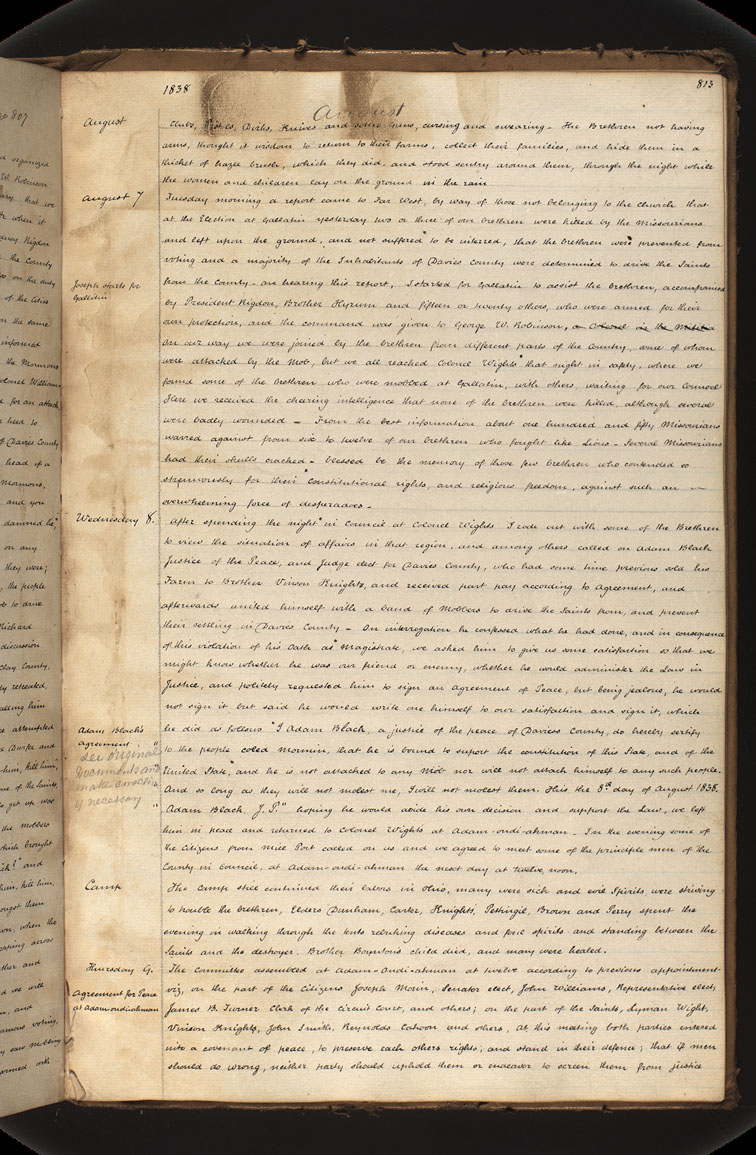 1838
813
August
August
Clubs, Pistols, Dirks, Knives and some Guns, cursing and swearing - The Brethren not having
arms, thought it wisdom to return to their farms, collect their families, and hide them in a
thicket of hazle brush, which they did, and stood sentry around them, through the night while
the women and children lay on the ground in the rain
August 7
Tuesday morning a report came to Far West, by way of those not belonging to the Church that
at the Election at Gallatin yesterday two or three of our brethren were killed by the Missourians
and left upon the ground, and not suffered to be interred, that the brethren were prevented from
voting and a majority of the Inhabitants of Davies County were determined to drive the Saints
Joseph starts for
Gallatin
from the county - on hearing this report, I started for Gallatin to assist the brethren, accompanied
by President Rigdon, Brother Hyrum and fifteen or twenty others, who were armed for their
own protection, and the command was given to George W. Robinson, a Colonel in the Militia
On our way we were joined by the brethren from different parts of the Country, some of whom
were attacked by the Mob, but we all reached Colonel Wights that night in safety, where we
found some of the Brethren who were mobbed at Gallatin, with others, waiting for our Council
Here we received the cheering intelligence that none of the brethren were killed, although several
were badly wounded - From the best information about one hundred and fifty Missourians
warred against from six to twelve of our brethren who fought like Lions - Several Missourians
had their skulls cracked - blessed be the memory of those few brethren who contended so
strenuously for their Constitutional rights, and religious freedom, against such an
overwhelming force of desperadoes -
Wednesday 8.
After spending the night in Council at Colonel Wights I rode out with some of the Brethren
to view the situation of affairs in that region, and among others called on Adam Black
Justice of the Peace, and Judge elect for Davies County, who had some time previous sold his
Farm to Brother Vinson Knights, and received part pay according to agreement, and
afterwards united himself with a band of Mobbers to drive the Saints from, and prevent
their settling in Davies County - On interrogation he confessed what he had done, and in consequence
of this violation of his Oath as Magistrate, we asked him to give us some satisfaction so that we
might know whether he was our friend or enemy, whether he would administer the Law in
Justice, and politely requested him to sign an agreement of Peace, but being jealous, he would
not sign it but said he would write one himself to our satisfaction and sign it, which
Adam Black's
agreement
See original
Documents and
make corrections
if necessary
he did as follows "I Adam Black, a justice of the peace of Daviess County, do hereby sertify
to the people coled mormin, that he is bound to suport the constitution of this State, and of the
United State, and he is not attached to any Mob nor will not attach himself to any such people.
And so long as they will not molest me, I will not molest them. This the 8th day of August 1838.
Adam Black, J. P." hoping he would abide his own decision and support the Law, we left
him in peace and returned to Colonel Wights at Adam-ondi-ahman. In the evening some of
the Citizens from Mill Port called on us and we agreed to meet some of the principle men of the
County in Council, at Adam-ondi-ahman the next day at twelve, noon.
Camp
The Camp still continued their labors in Ohio, many were sick and evil spirits were striving
to trouble the brethren, Elders Dunham, Carter, Knights, Pettingil, Brown and Perry spent the
evening in walking through the tents rebuking diseases and foul spirits and standing between the
Saints and the destroyer. Brother Boyntons child died, and many were healed.
Thursday 9.
Agreement for Peace
at Adam ondi ahman
The Committee assembled at Adam-Ondi-ahman at twelve according to previous appointment
viz, on the part of the Citizens Joseph Morin, Senator elect, John Williams, Representative elect,
James B. Turner Clerk of the Circuit Court, and others; on the part of the Saints, Lyman Wight,
Vinson Knights, John Smith, Reynolds Cahoon and others, At this meeting both parties entered
into a covenant of peace, to preserve each others rights, and stand in their defence; that if men
should do wrong, neither party should uphold them or endeavor to screen them from justice